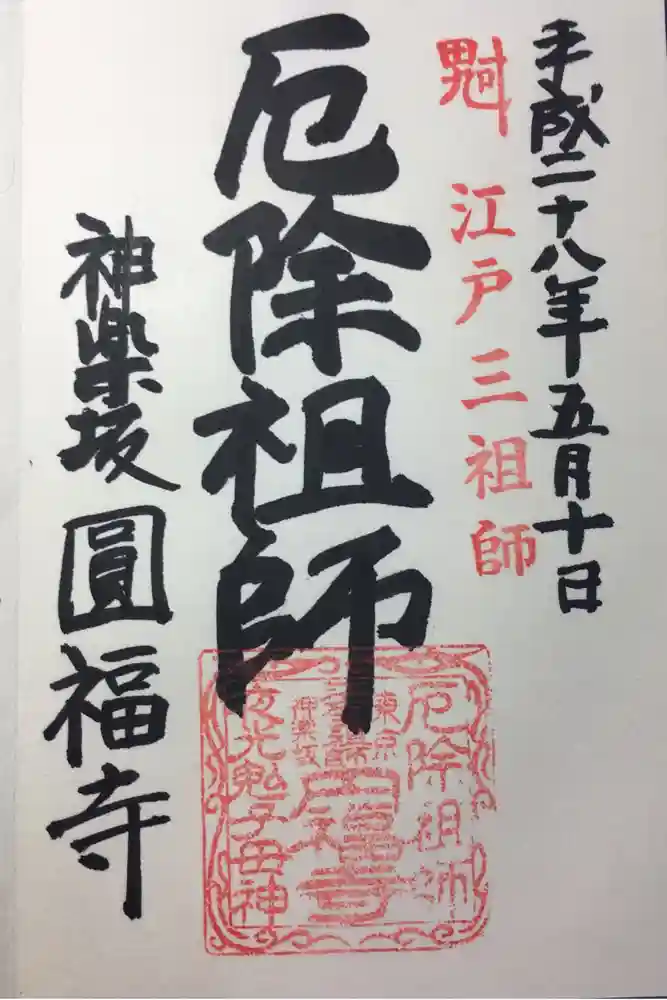 平成二十八年五月十日
江戸三祖師
厄除祖師
神楽坂圓福寺
厄除祖師
東京
神楽坂
圓福寺
夜光鬼子母神